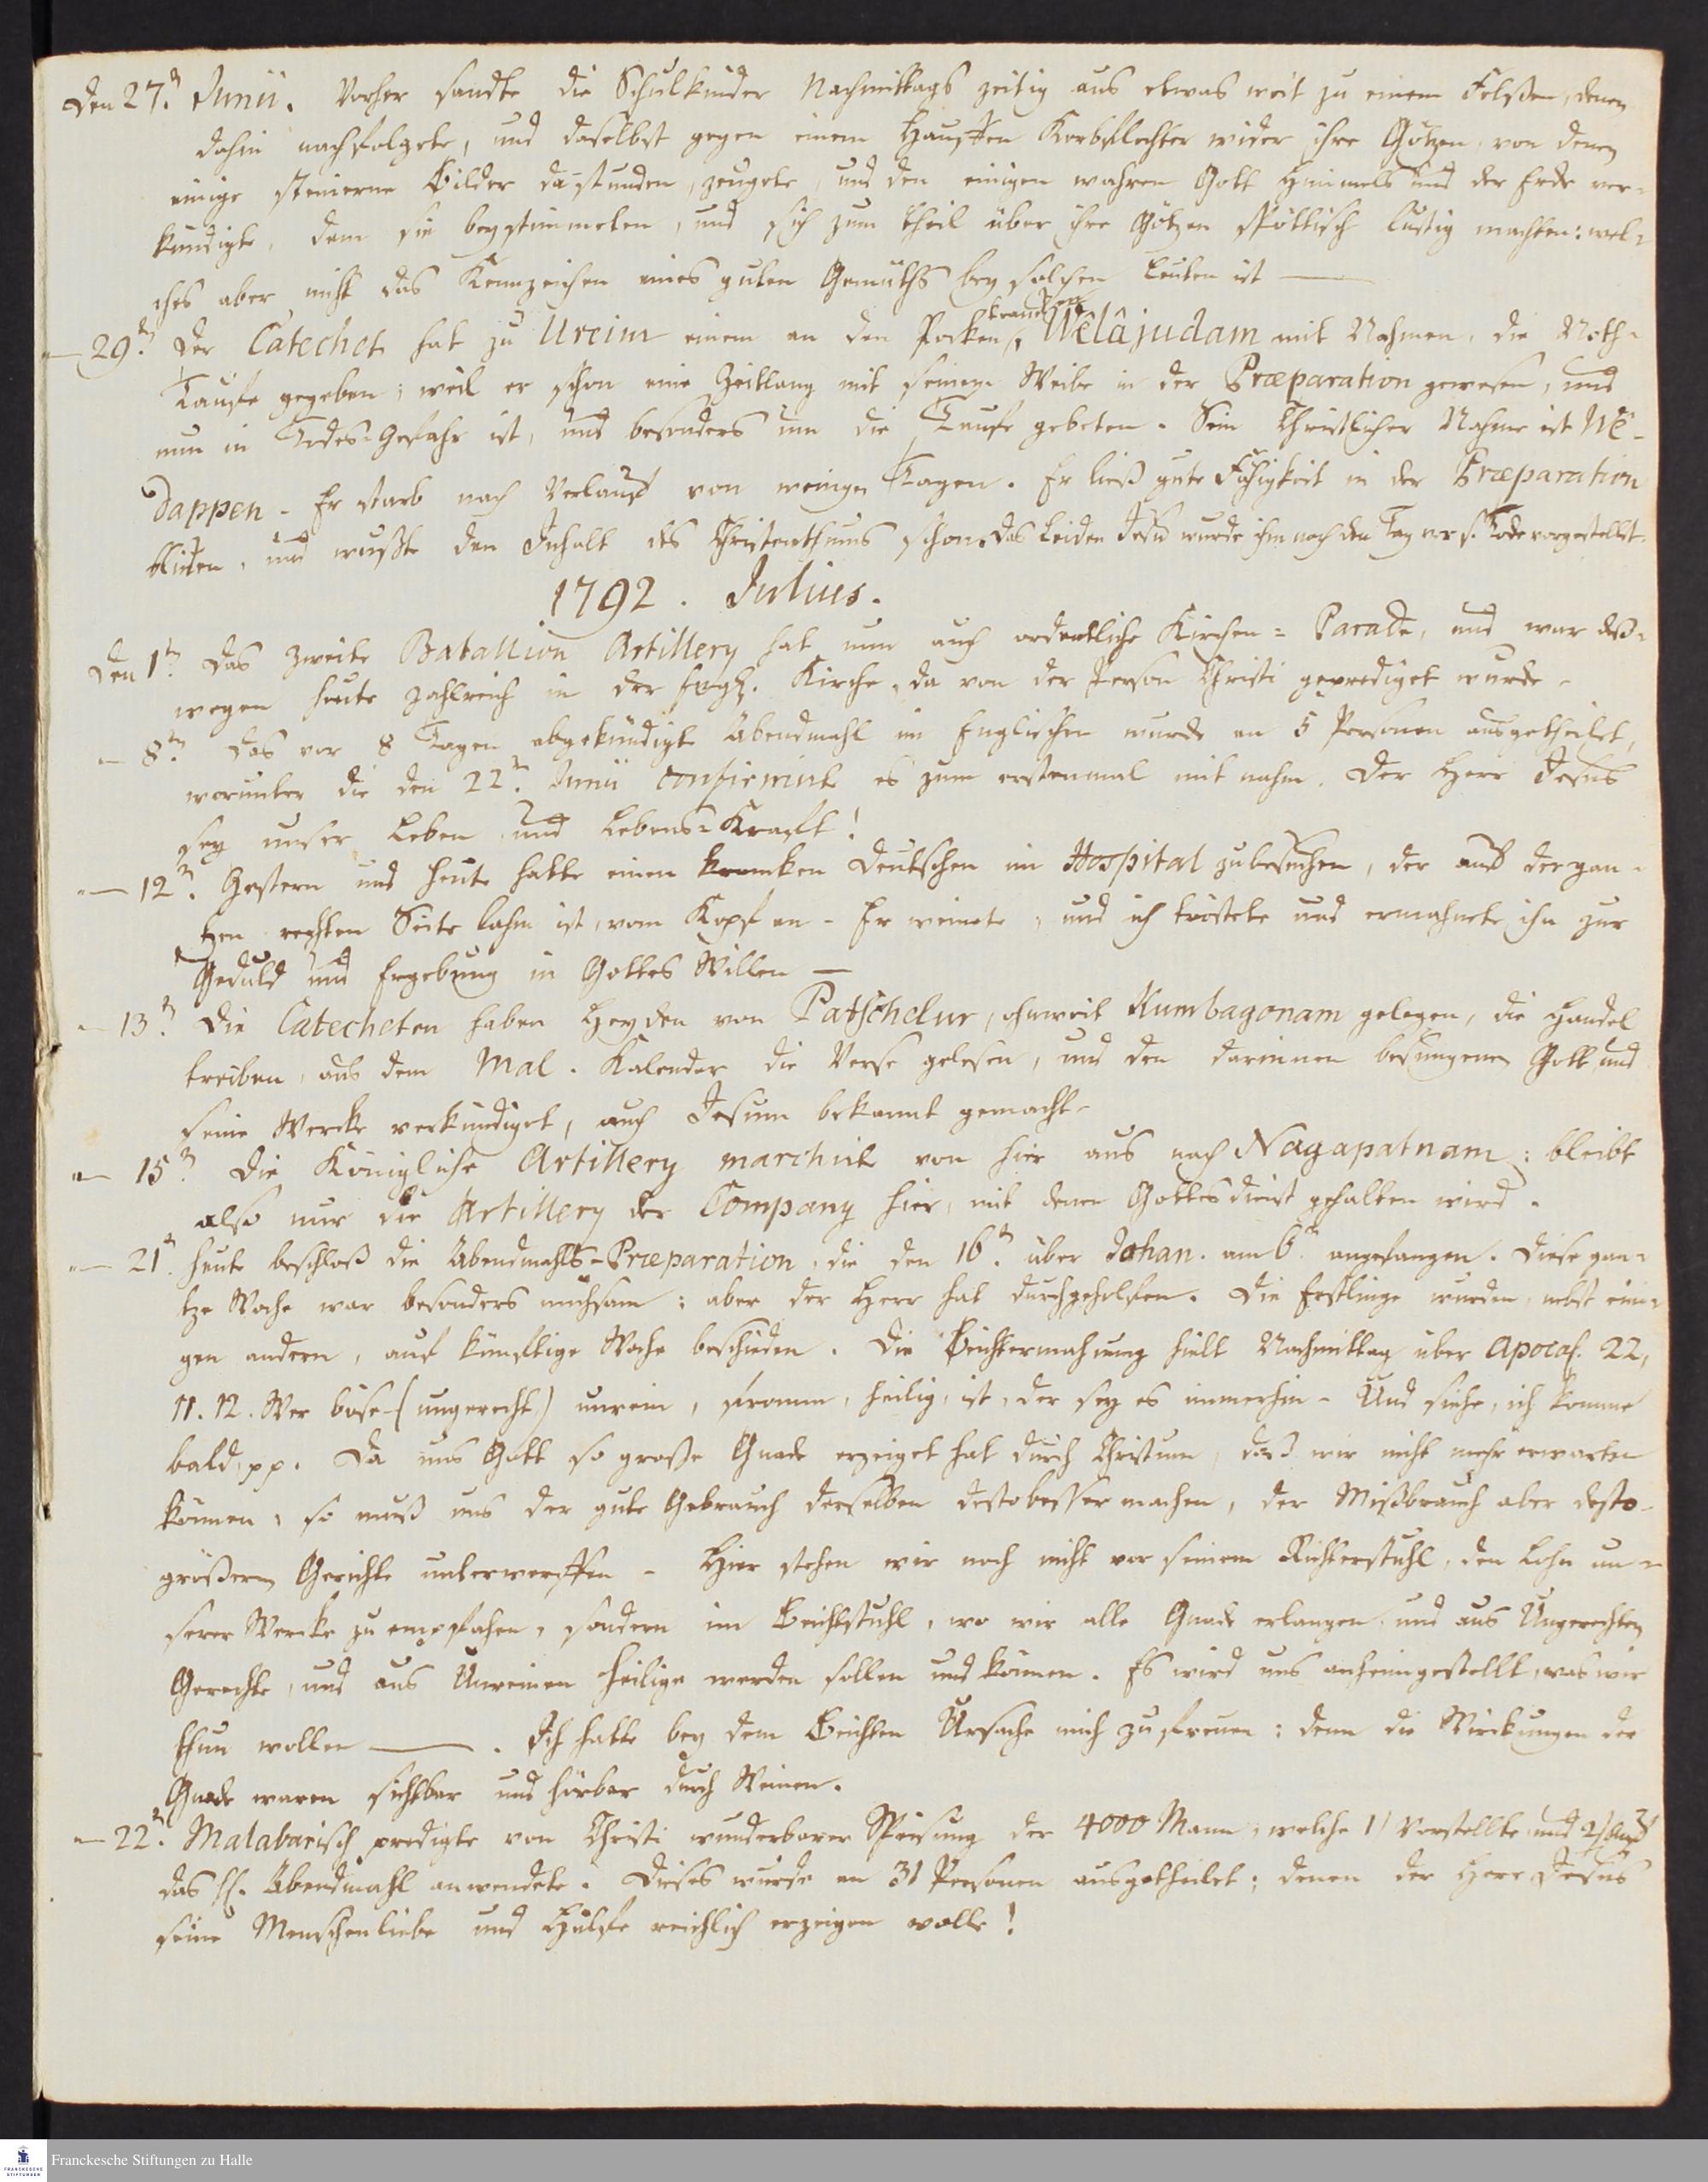 Den 27.n Junii. Vorher sandte die Schulkinder Nachmittags zeitig aus etwas weit zu einem Felßen, denen
dahin nachfolgete, und daselbst gegen einem Hauffen Korbflechter wider ihre Götzen, von denen
einige steinerne Bilder da stunden, zeugete, und den einigen wahren Gott Himmels und der Erde ver-
kündigte, dem sie beystimmeten, und sich zum theil über ihre Götzen spöttisch lustig machten: wel-
ches aber nicht das Kennzeichen eines guten Gemüths bey solchen Leuten ist —
— 29.n Der Catechet hat zu Ureiur einem an den Pocken krancken, Wêlâjudam mit Nahmen, die Noth-
Taufe gegeben; weil er schon eine Zeitlang mit seinem Weibe in der Præparation gewesen, und
nun in Todes-Gefahr ist, und besonders um die Taufe gebeten. Sein Christlicher Nahme ist Wê-
dappen. Er starb nach Verlauf von wenigen Tagen. Er ließ gute Fähigkeit in der Præparation
blicken, und wußte den Inhalt des Christenthums schon. Das Leiden Jesu wurde ihm noch den Tag vor s. Tode vorgestellt.
1792. Julius.
Den 1.n Das zweite Batallion Artillery hat nun auch ordentliche Kirchen-Parade, und war deß-
wegen heute zahlreich in der Engl. Kirche, da von der Person Christi geprediget wurde.
— 8.n Das vor 8 Tagen abgekündigte Abendmahl im Englischen wurde an 5 Personen ausgetheilet,
worunter die den 22.n Junii confirmirte es zum erstenmal mit nahm. Der Herr Jesus
sey unser Leben und Lebens-Krafft!
— 12.n Gestern und heute hatte einen krancken Deutschen im Hospital zu besuchen, der auf der gan-
tzen rechten Seite lahm ist, vom Kopf an. Er weinete, und ich tröstete und ermahnete ihn zur
Geduld und Ergebung in Gottes Willen —
— 13.n Die Catecheten haben Heyden von Patschelur, ohnweit Kumbagonam gelegen, die Handel
treiben, aus dem Mal. Kalender die Verse gelesen, und den darinnen besungenen Gott und
seine Wercke verkündiget, auch Jesum bekannt gemacht.
— 15.n Die Königliche Artillery marchirt von hier aus nach Nagapatnam; bleibt
also nur die Artillery der Company hier, mit denen Gottesdienst gehalten wird.
— 21.n Heute beschloß die Abendmahls-Præparation, die den 16.n über Johan. am 6.n angefangen. Diese gan-
tze Woche war besonders mühsam; aber der Herr hat durchgeholfen. Die Erstlinge wurden, nebst eini-
gen andern, auf künftige Woche beschieden. Die Beichtermahnung hielt Nachmittag über Apocal. 22,
11. 12. Wer böse (ungerecht) unrein, fromm, heilig, ist, der sey es immerhin. Und siehe, ich komme
bald pp. Da uns Gott so große Gnade erzeiget hat durch Christum, daß wir nicht mehr erwarten
können, so muß uns der gute Gebrauch derselben desto besser machen, der Mißbrauch aber desto
größern Gerichte unterwerffen. Hier stehen wir noch nicht vor seinem Richterstuhl, den Lohn un-
serer Wercke zu empfahen, sondern im Beichtstuhl, wo wir alle Gnade erlangen, und aus Ungerechten
Gerechte, und aus Unreinen Heilige werden sollen und können. Es wird uns anheimgestellt, was wir
thun wollen —. Ich hatte bey dem Beichten Ursache mich zu freuen: denn die Wirckungen der
Gnade waren sichtbar und hörbar durch Weinen.
— 22.n Malabarisch predigte von Christi wunderbarer Speisung der 4000 Mann, welche 1) Vorstellte und 2) Auf
das Hl. Abendmahl anwendete. Dieses wurde an 31 Personen ausgetheilet; denen der Herr Jesus
seine Menschenliebe und Hülfe reichlich erzeigen wolle!
Franckesche Stiftungen zu Halle